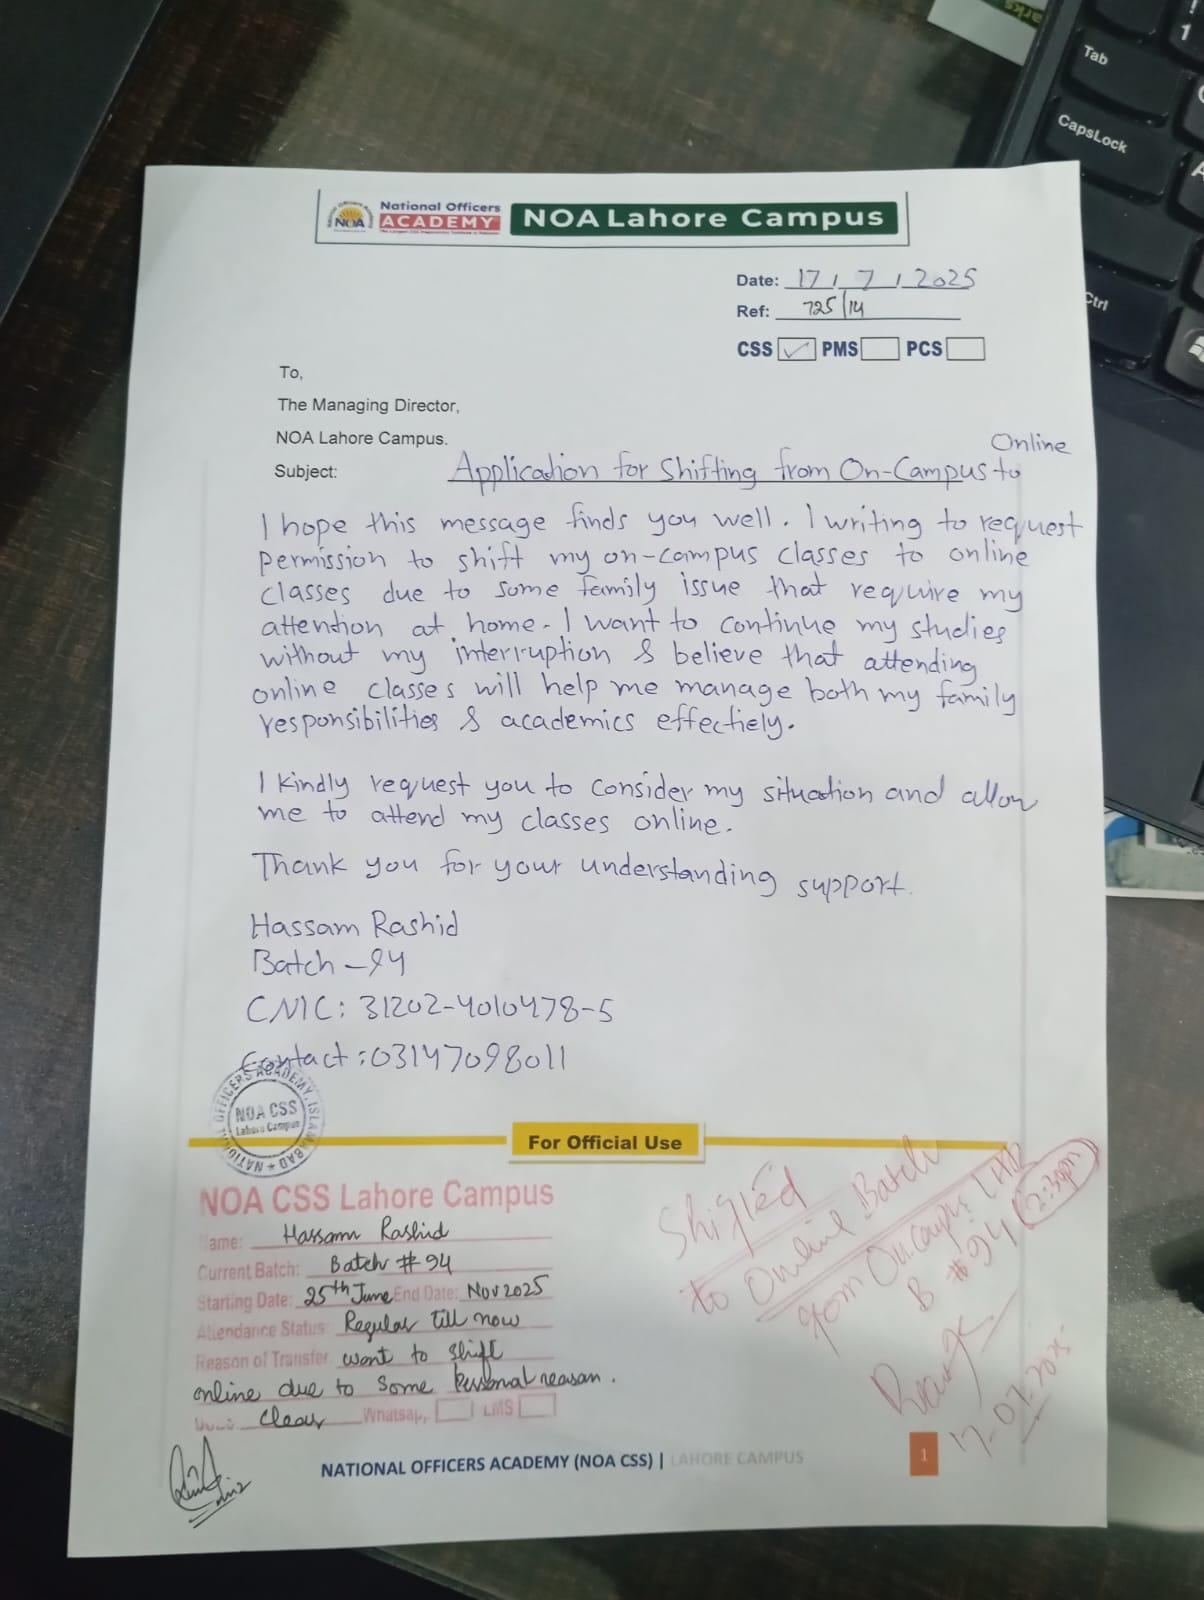 National Officers
ACADEMY
NOA
NOA Lahore Campus
Date: 17/7/2025
Ref: 725/14
CSS ✓ PMS PCS
To,
The Managing Director,
NOA Lahore Campus.
Subject: Application for Shifting from On-Campus to Online
I hope this message finds you well. I writing to request
permission to shift my on-campus classes to online
classes due to some family issue that require my
attention at home. I want to continue my studies
without my interruption & believe that attending
online classes will help me manage both my family
responsibilities & academics effectiely.
I kindly request you to consider my situation and allow
me to attend my classes online.
Thank you for your understanding support.
Hassam Rashid
Batch-94
CNIC: 31202-4010478-5
Contact: 03147098011
NATIONAL OFFICERS ACADEMY, ISLAMABAD
NOA CSS
Lahore Campus
For Official Use
NOA CSS Lahore Campus
Name: Hassam Rashid
Current Batch: Batch # 94
Starting Date: 25th June End Date: Nov 2025
Attendance Status: Regular till now
Reason of Transfer want to shift
online due to some personal reason.
Clear Whatsap, LMS
Shifted
to Online Batch
from On.Campus LHR
B # 94 (2:30pm)
17-07-2025
NATIONAL OFFICERS ACADEMY (NOA CSS) | LAHORE CAMPUS
1
Tab
CapsLock
Ctrl